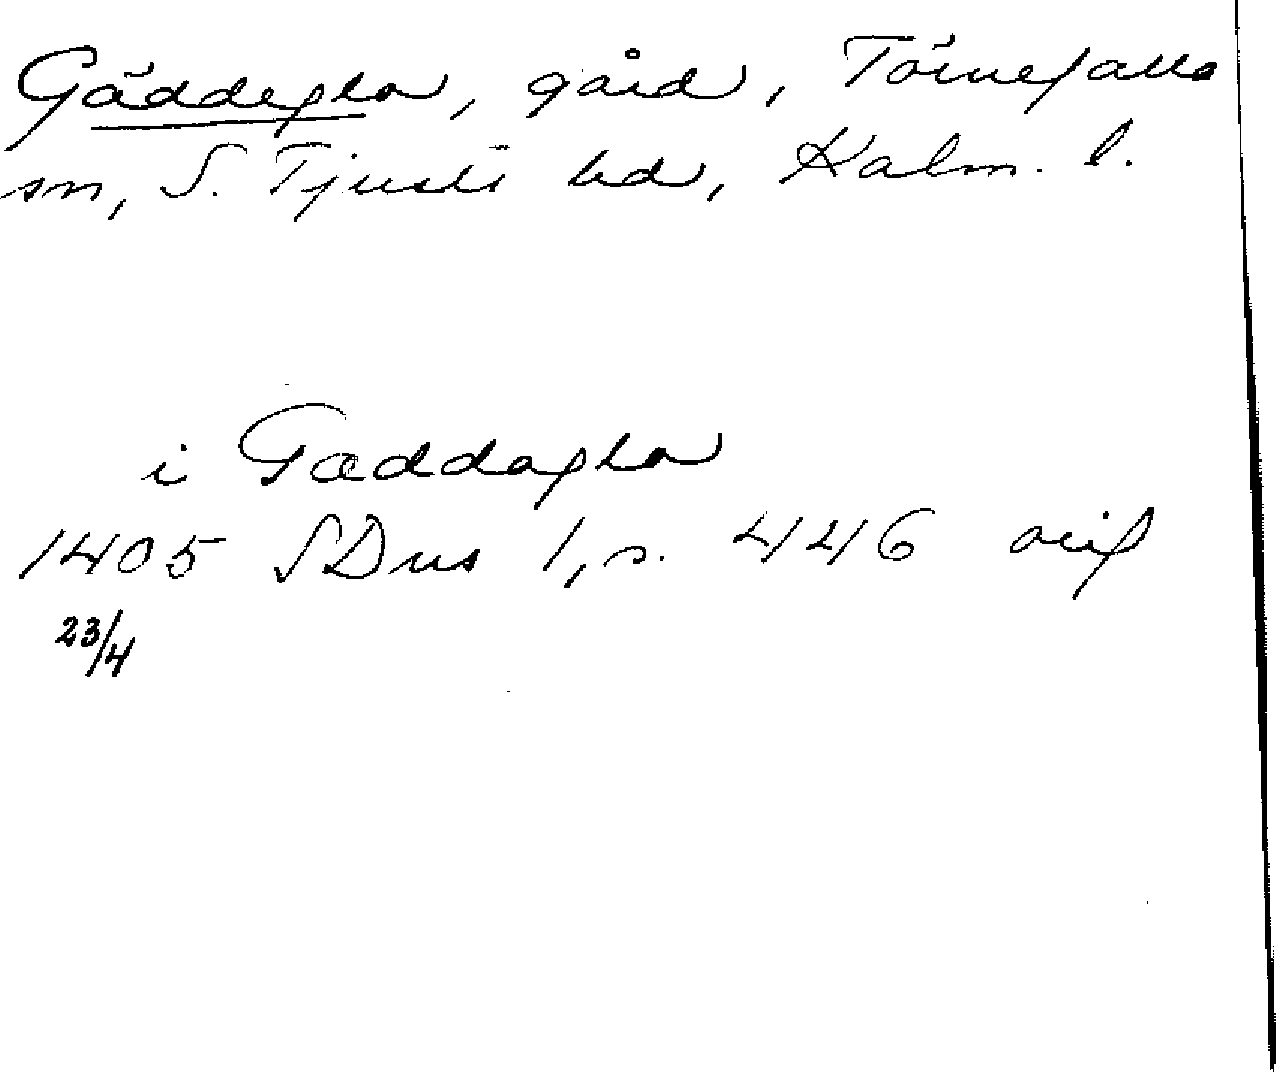 Gäddeglo, gård, Törnesfalla
sn, S. Tjusts hd, Kalm. l.
i Gæddaglo
1405 SDns 1, s. 446 orig
23/4